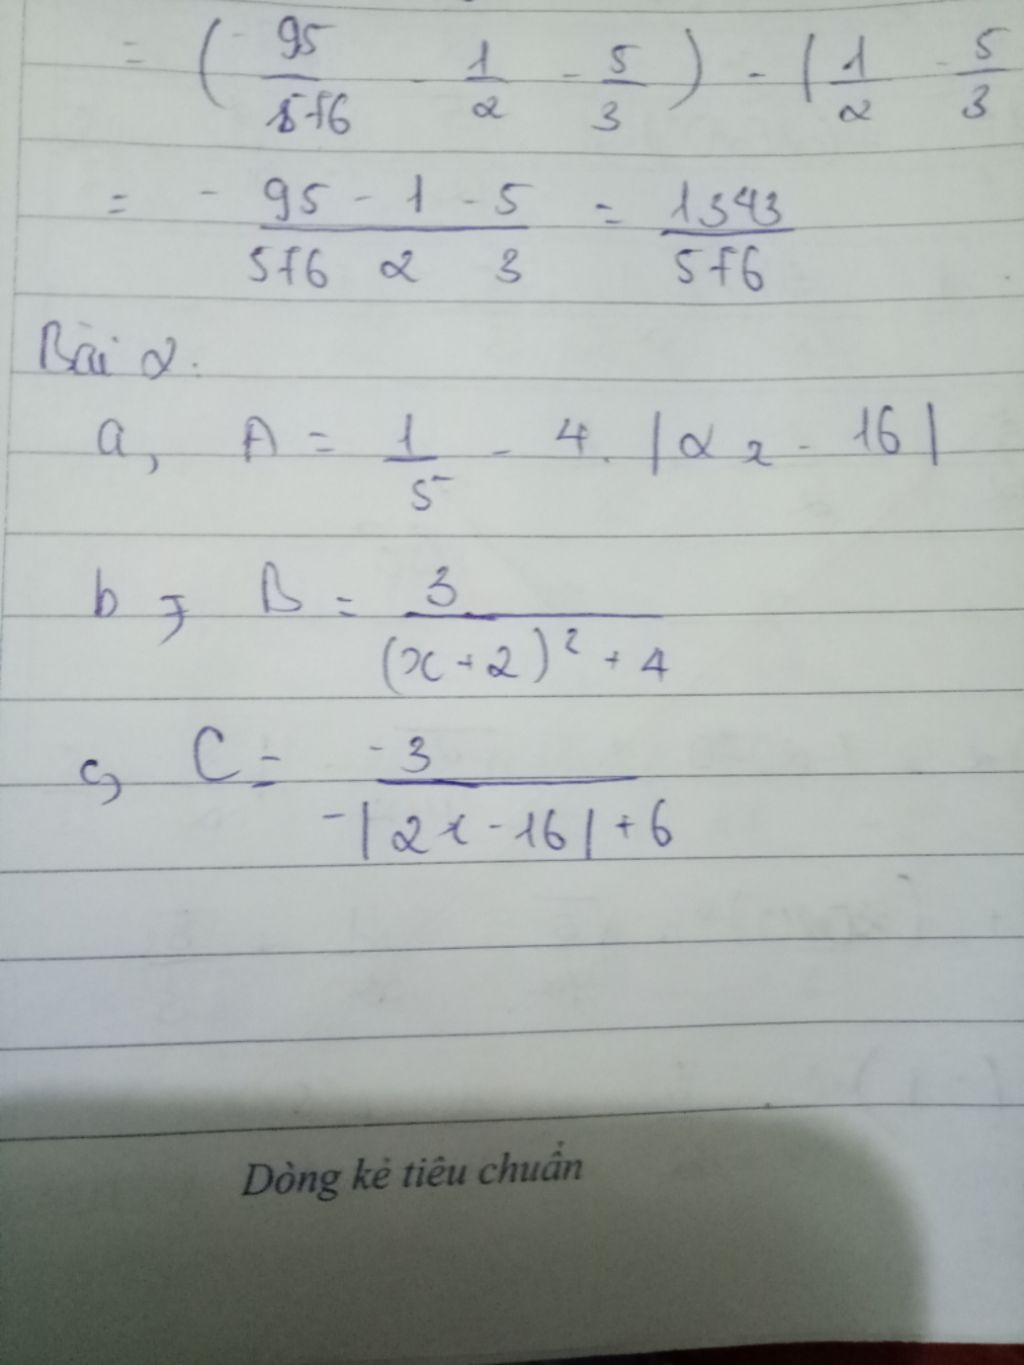 = (- 95/576 - 1/2 - 5/3) - (1/2 - 5/3
= - 95 - 1 - 5 / 576 2 3 = 1343/576
Bài 2.
a, A = 1/5 - 4. |2x - 16|
b, B = 3/(x+2)² + 4
c, C = -3/-|2x-16|+6
Dòng kẻ tiêu chuẩn